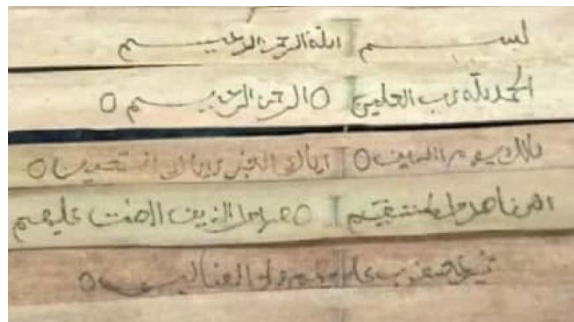 بسم الله الرحمن الرحيم
الحمد لله رب العلمين ○ الرحمن الرحيم ○
ملك يوم الدين ○ اياك نعبد و اياك نستعين ○
اهدنا الصراط المستقيم ○ صراط الذين انعمت عليهم
غير المغضوب عليهم ولا الضالين ○